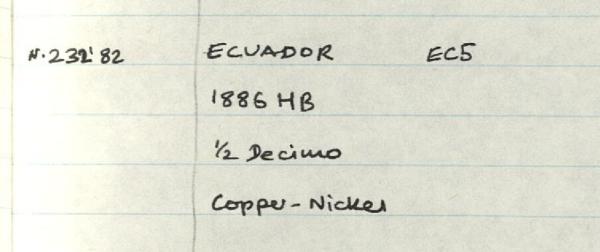 N.232'82 ECUADOR EC5
1886 HB
½ Decimo
Copper-Nickel